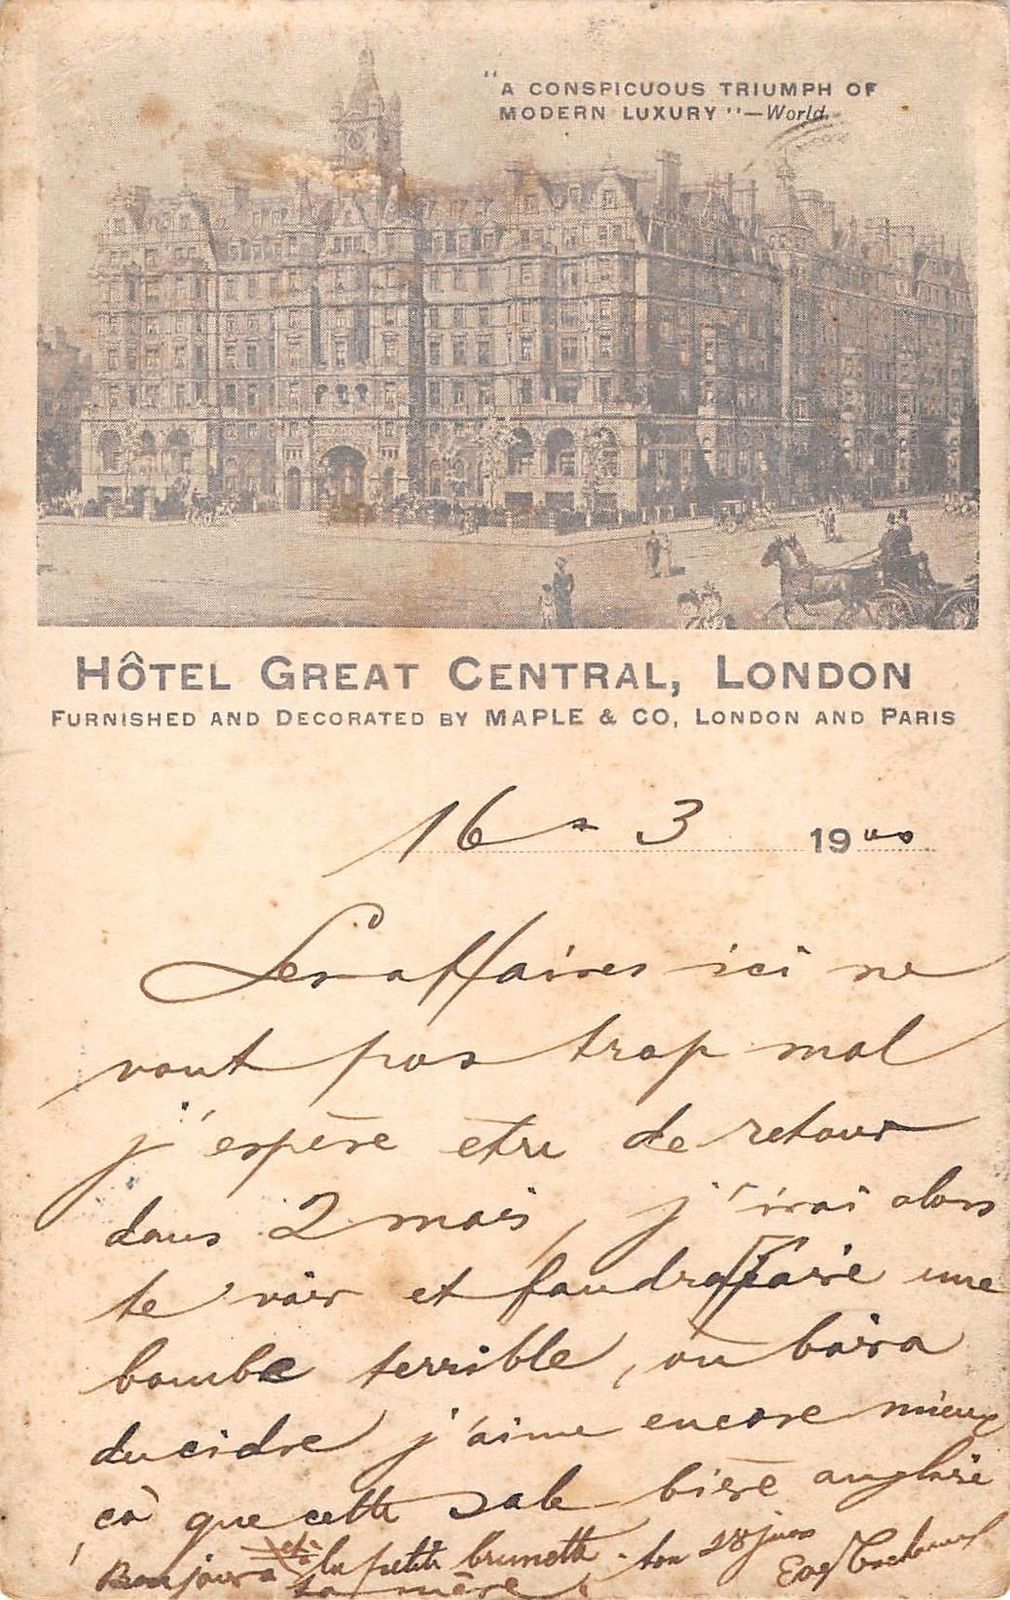 "A CONSPICUOUS TRIUMPH OF
MODERN LUXURY"—World.
HÔTEL GREAT CENTRAL, LONDON
FURNISHED AND DECORATED BY MAPLE & CO, LONDON AND PARIS
16 - 3 1900
Les affaires ici ne
vont pas trop mal
j'espère etre de retour
dans 2 mois, j'irai alors
te voir et faudra faire une
bombe terrible, on boira
du cidre j'aime encore mieux
ça que cette sale bière anglaise
Bonjour a la petite brunette. ton 28 jours
sa mère